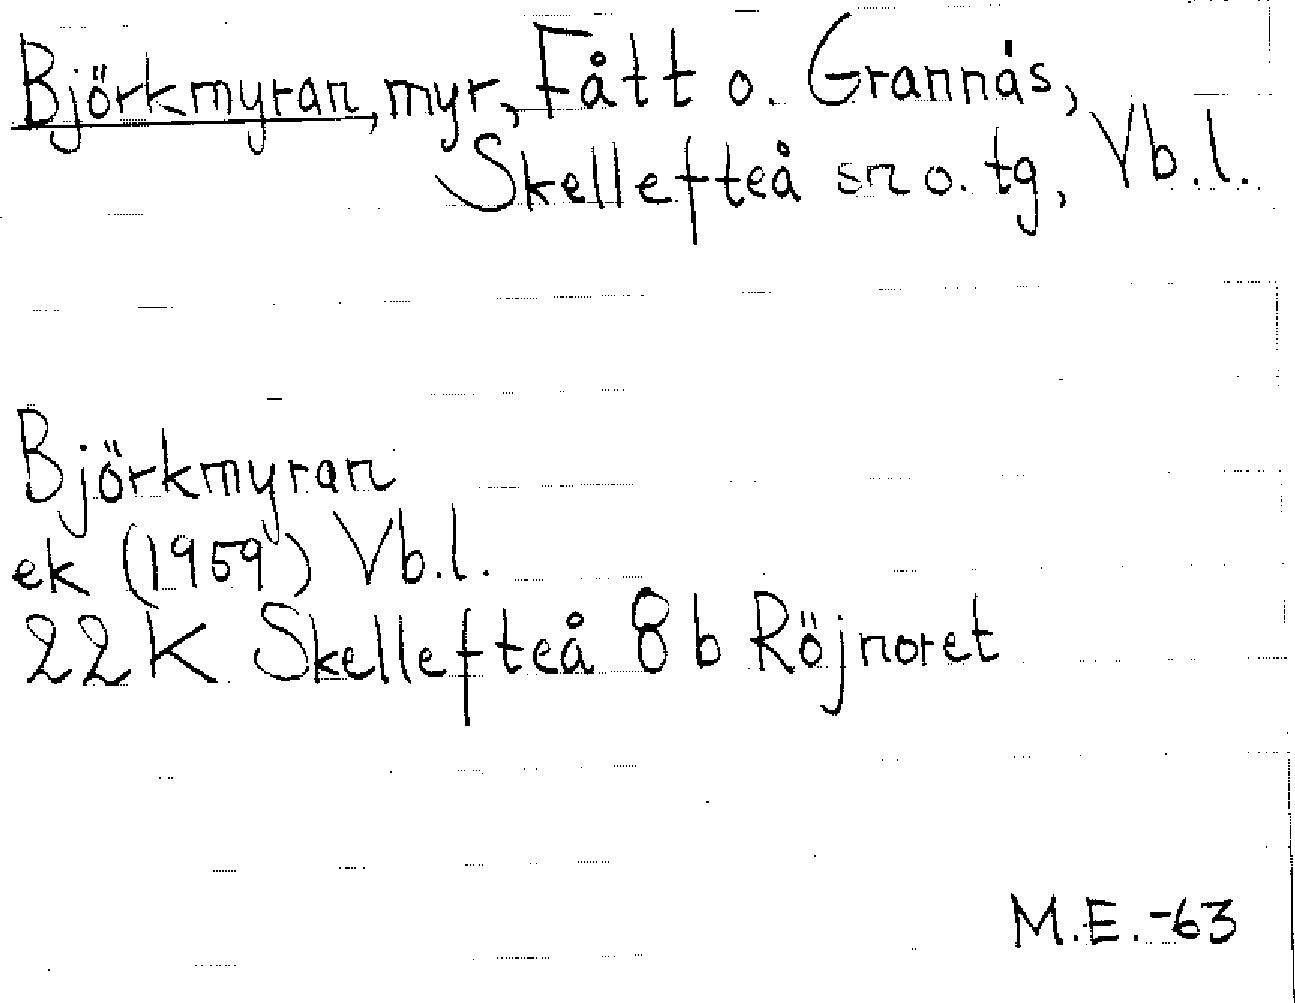 Björkmyran, myr, Fått o. Grannäs,
Skellefteå sn o. tg, Vb.l.
Björkmyran
ek (1959) Vb.l.
22K Skellefteå 8b Röjnoret
M.E.-63